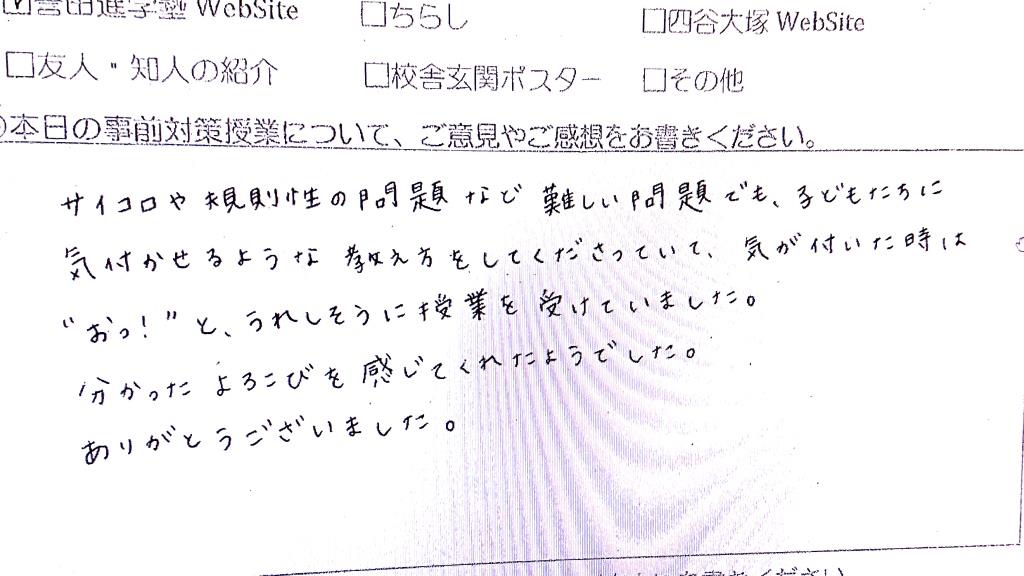 ☑誉田進学塾 WebSite □ちらし □四谷大塚 WebSite
□友人・知人の紹介 □校舎玄関ポスター □その他
本日の事前対策授業について、ご意見やご感想をお書きください。
サイコロや規則性の問題など難しい問題でも、子どもたちに
気付かせるような教え方をしてくださっていて、気が付いた時は
“おっ！”と、うれしそうに授業を受けていました。
分かったよろこびを感じてくれたようでした。
ありがとうございました。